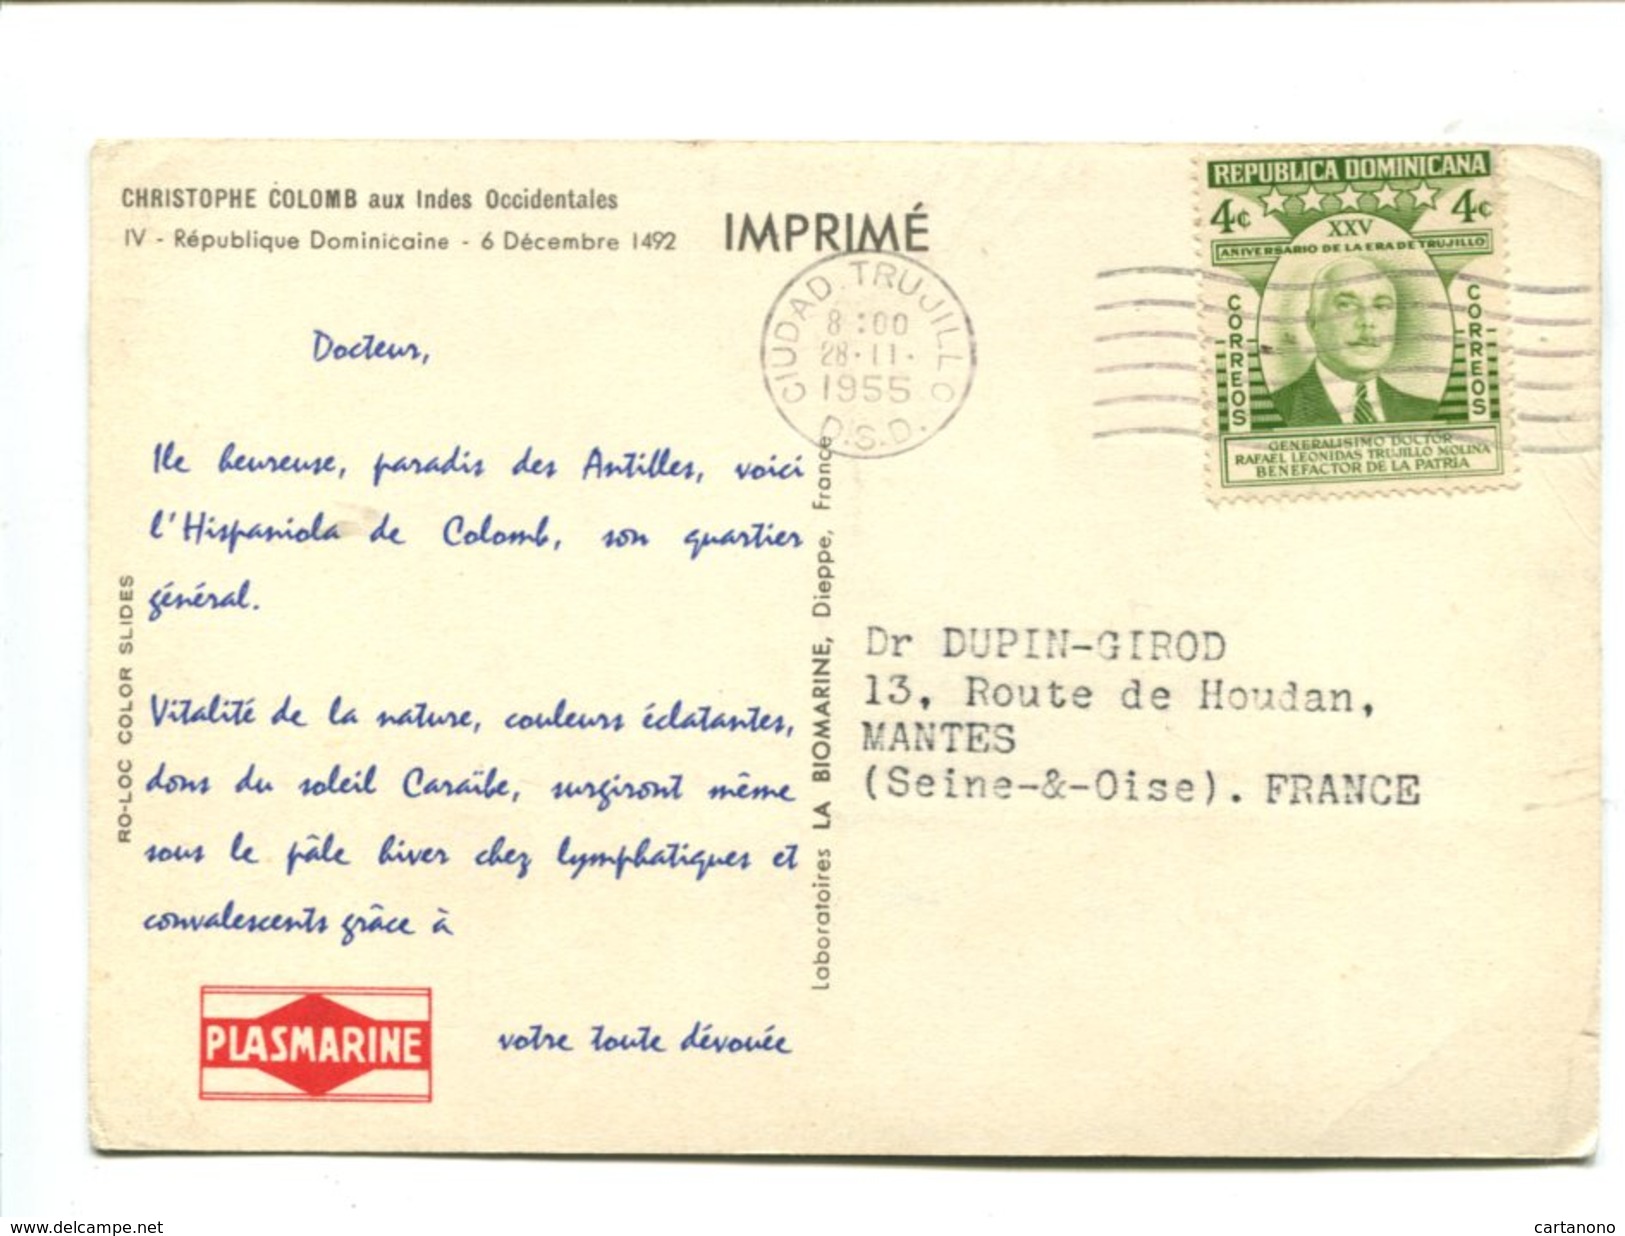 CHRISTOPHE COLOMB aux Indes Occidentales
IV - République Dominicaine - 6 Décembre 1492
IMPRIMÉ
Docteur,
Ile heureuse, paradis des Antilles, voici
l'Hispaniola de Colomb, son quartier
général.
Vitalité de la nature, couleurs éclatantes,
dons du soleil Caraïbe, surgiront même
sous le pâle hiver chez lymphatiques et
convalescents grâce à
PLASMARINE
votre toute dévouée
RO-LOC COLOR SLIDES
Laboratoires LA BIOMARINE, Dieppe, France
CIUDAD TRUJILLO
8:00
28·11·
1955
D.S.D.
REPUBLICA DOMINICANA
4¢ 4¢
XXV
ANIVERSARIO DE LA ERA DE TRUJILLO
CORREOS
CORREOS
GENERALISIMO DOCTOR
RAFAEL LEONIDAS TRUJILLO MOLINA
BENEFACTOR DE LA PATRIA
Dr DUPIN-GIROD
13, Route de Houdan,
MANTES
(Seine-&-Oise). FRANCE
www.delcampe.net
cartanono